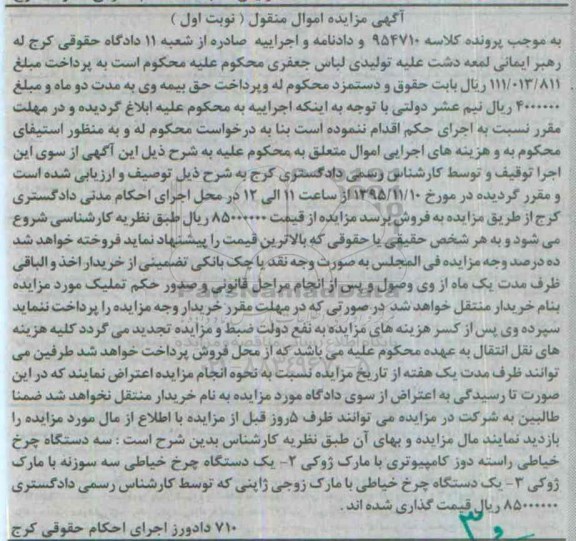 آگهی مزایده اموال منقول ( نوبت اول )
به موجب پرونده کلاسه ۹۵۴۷۱۰ و دادنامه و اجراییه صادره از شعبه ۱۱ دادگاه حقوقی کرج له
رهبر ایمانی لمعه دشت علیه تولیدی لباس جعفری محکوم علیه محکوم است به پرداخت مبلغ
۱۱۱/۰۱۳/۸۱۱ ریال بابت حقوق و دستمزد محکوم له وپرداخت حق بیمه وی به مدت دو ماه و مبلغ
۴۰۰۰۰۰۰ ریال نیم عشر دولتی با توجه به اینکه اجراییه به محکوم علیه ابلاغ گردیده و در مهلت
مقرر نسبت به اجرای حکم اقدام ننموده است بنا به درخواست محکوم له و به منظور استیفای
محکوم به و هزینه های اجرایی اموال متعلق به محکوم علیه به شرح ذیل این آگهی از سوی این
اجرا توقیف و توسط کارشناس رسمی دادگستری کرج به شرح ذیل توصیف و ارزیابی شده است
و مقرر گردیده در مورخ ۱۳۹۵/۱۱/۱۰ از ساعت ۱۱ الی ۱۲ در محل اجرای احکام مدنی دادگستری
کرج از طریق مزایده به فروش برسد مزایده از قیمت ۸۵۰۰۰۰۰۰ ریال طبق نظریه کارشناسی شروع
می شود و به هر شخص حقیقی یا حقوقی که بالاترین قیمت را پیشنهاد نماید فروخته خواهد شد
ده درصد وجه مزایده فی المجلس به صورت وجه نقد یا چک بانکی تضمینی از خریدار اخذ و الباقی
ظرف مدت یک ماه از وی وصول و پس از انجام مراحل قانونی و صدور حکم تملیک مورد مزایده
بنام خریدار منتقل خواهد شد در صورتی که در مهلت مقرر خریدار وجه مزایده را پرداخت ننماید
سپرده وی پس از کسر هزینه های مزایده به نفع دولت ضبط و مزایده تجدید می گردد کلیه هزینه
های نقل انتقال به عهده محکوم علیه می باشد که از محل فروش پرداخت خواهد شد طرفین می
توانند ظرف مدت یک هفته از تاریخ مزایده نسبت به نحوه انجام مزایده اعتراض نمایند که در این
صورت تا رسیدگی به اعتراض از سوی دادگاه مورد مزایده به نام خریدار منتقل نخواهد شد ضمنا
طالبین به شرکت در مزایده می توانند ظرف ۵روز قبل از مزایده با اطلاع از مال مورد مزایده را
بازدید نمایند مال مزایده و بهای آن طبق نظریه کارشناس بدین شرح است : سه دستگاه چرخ
خیاطی راسته دوز کامپیوتری با مارک ژوکی ۲- یک دستگاه چرخ خیاطی سه سوزنه با مارک
ژوکی ۳- یک دستگاه چرخ خیاطی با مارک زوجی ژاپنی که توسط کارشناس رسمی دادگستری
۸۵۰۰۰۰۰۰ ریال قیمت گذاری شده اند .
۷۱۰ دادورز اجرای احکام حقوقی کرج